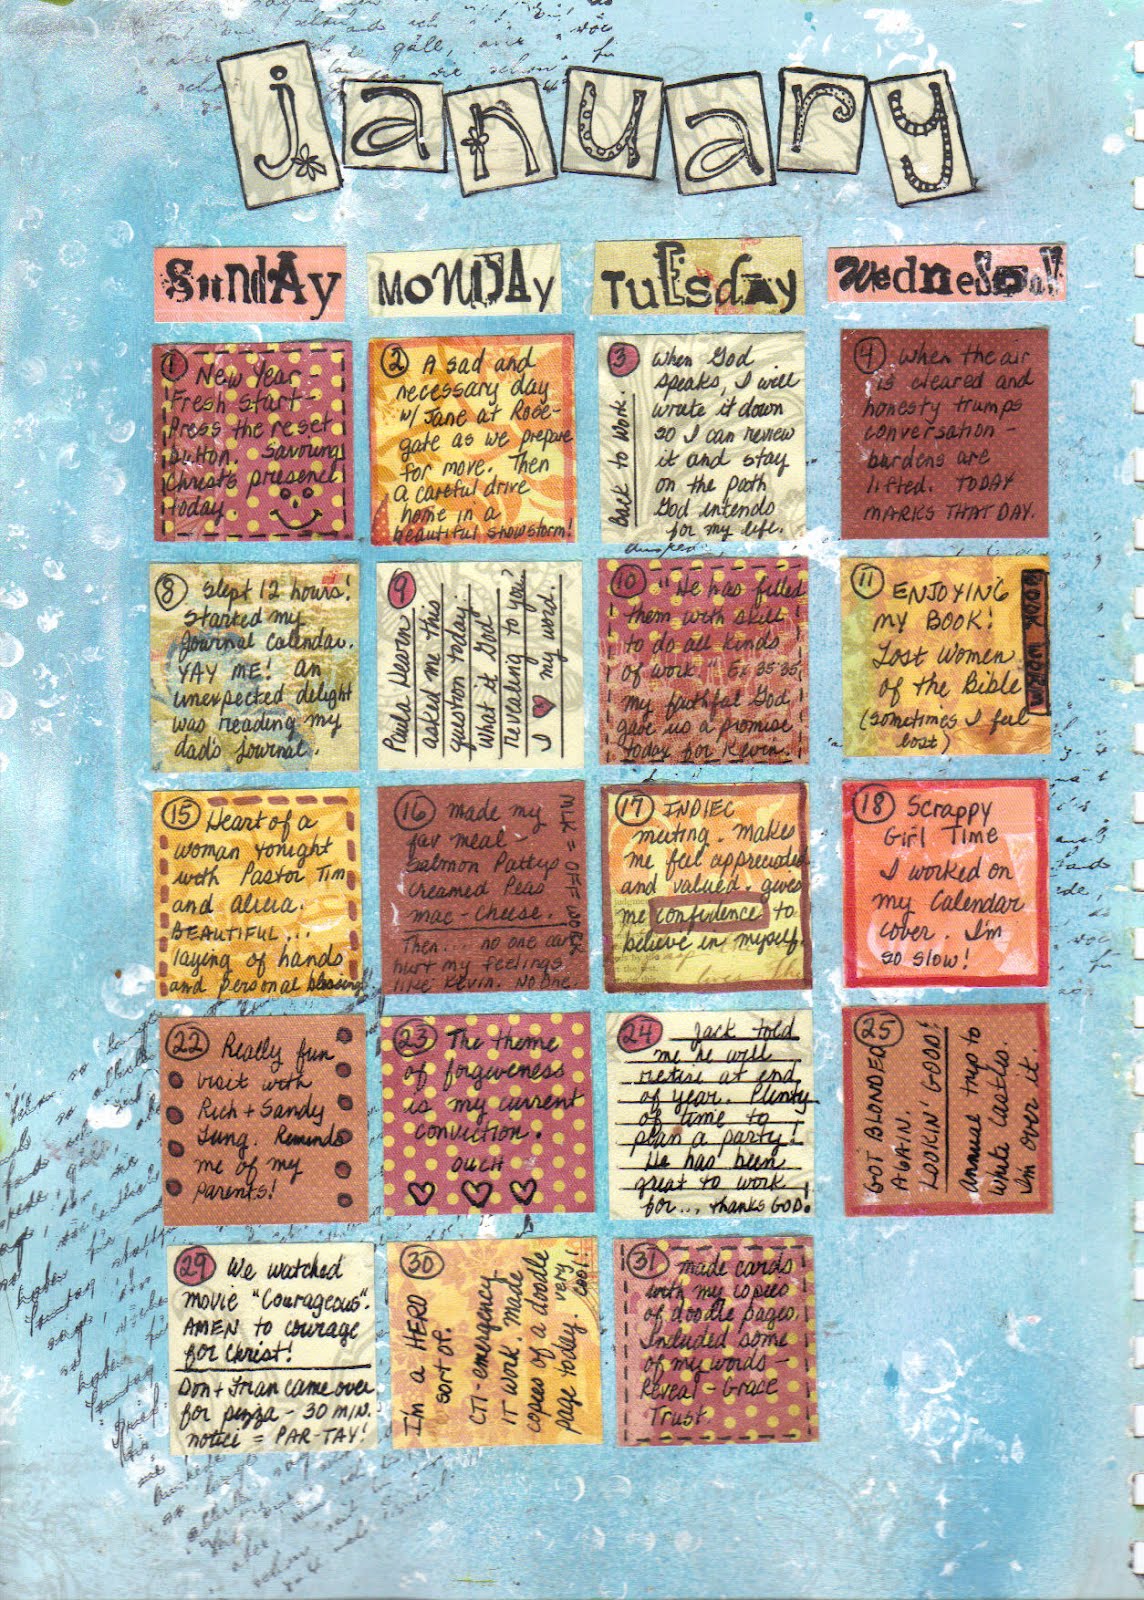 january
Sunday
Monday
Tuesday
Wednesday
1 New Year -
Fresh start -
Press the reset
button. Savoring
Christ's presence
today.
2 A sad and
necessary day
w/ Jane at Rose-
gate as we prepare
for move. Then
a careful drive
home in a
beautiful snowstorm!
3 When God
speaks, I will
write it down
so I can review
it and stay
on the path
God intends
for my life.
Back to Work.
4 When the air
is cleared and
honesty trumps
conversation -
burdens are
lifted. TODAY
MARKS THAT DAY.
8 Slept 12 hours!
Started my
Journal Calendar.
YAY ME! An
unexpected delight
was reading my
dad's journal.
9
Paula
asked me this
question today.
What is God
revealing to you?
I ♥ my word.
10 "He has filled
them with skill
to do all kinds
of work." Ex 35:35
my faithful God
gave us a promise
today for Kevin.
11 ENJOYING
my BOOK!
Lost Women
of the Bible
(sometimes I feel
lost)
BOOK WORM
15 Heart of a
woman tonight
with Pastor Tim
and Alicia.
BEAUTIFUL...
laying of hands
and personal blessing!
16 made my
fav meal -
Salmon Pattys
Creamed Peas
mac-Cheese.
Then... no one can
hurt my feelings
like Kevin. No One.
MLK = OFF WORK
17 INDIEC
meeting. Makes
me feel appreciated
and valued. gives
me confidence to
believe in myself.
18 Scrappy
Girl Time
I worked on
my Calendar
cover. I'm
so slow!
22 Really fun
visit with
Rich + Sandy
Jung. Reminds
me of my
parents!
23 The theme
of forgiveness
is my current
conviction.
OUCH
24 Jack told
me he will
retire at end
of year. Plenty
of time to
plan a party!
He has been
great to work
for... thanks GOD!
25
GOT BLONDER
AGAIN.
LOOKIN' GOOD!
Annual trip to
White Castles.
I'm over it.
29 We watched
movie "Courageous".
AMEN to courage
for Christ!
Don + Fran came over
for pizza - 30 min.
notice = PAR-TAY!
30
I'm a HERO
sort of.
CTI-emergency
IT work. Made
copies of a doodle
page today. very
cool!
31 made cards
with my copies
of doodle pages.
Included some
of my words -
Reveal - Grace
Trust.